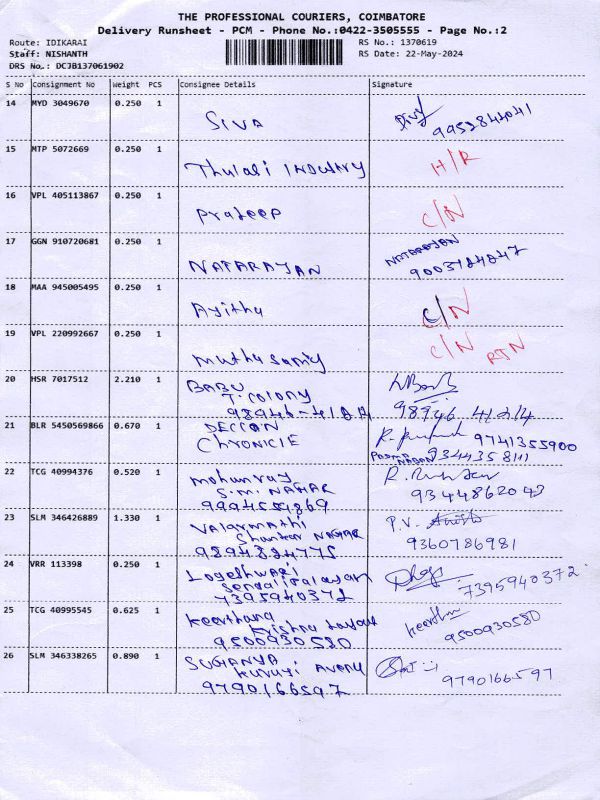 THE PROFESSIONAL COURIERS, COIMBATORE
Delivery Runsheet - PCM - Phone No.:0422-3505555 - Page No.:2
Route: IDIKARAI
Staff: NISHANTH
DRS No.: DCJB137061902
RS No.: 1370619
RS Date: 22-May-2024
S No Consignment No Weight PCS Consignee Details Signature
14 MYD 3049670 0.250 1
SIVA
15 MTP 5072669 0.250 1
Thulasi INDUSTRY H/R
16 VPL 405113867 0.250 1
Pradeep C/N
17 GGN 910720681 0.250 1
NATARAJAN NATARAJAN
9003184847
18 MAA 945005495 0.250 1
C/N
19 VPL 220992667 0.250 1
Muthusamy C/N RTN
20 HSR 7017512 2.210 1
BABU
T. Colony
98946 41214
21 BLR 5450569866 0.670 1
DECCON
ChRONICIE
9741355900
9344358111
22 TCG 40994376 0.520 1
Mohanraj
S.M. NAGAR
9344862043
23 SLM 346426889 1.330 1
Valarmathi
Shanker NAGAR
9894884775
P.V.
9360786981
24 VRR 113398 0.250 1
Logeshwari
7395940372
7395940372
25 TCG 40995545 0.625 1
Keerthana
Krishna Layout
9500930580
Keerthana
9500930580
26 SLM 346338265 0.890 1
SUGANYA
Kuruji Avenu
9790166597
9790166597